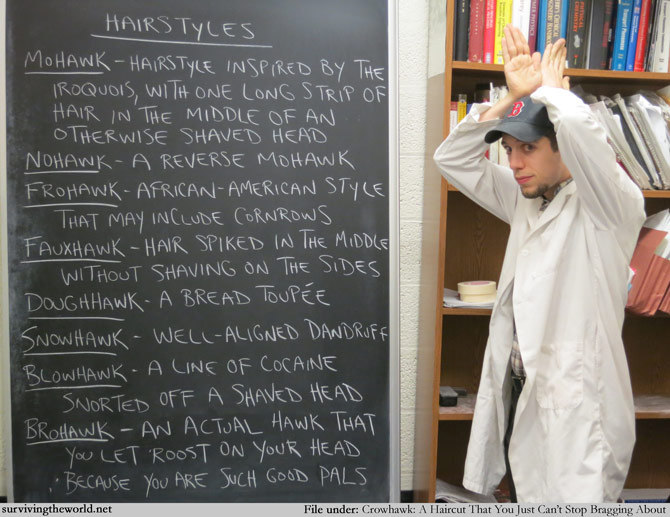 HAIRSTYLES
MOHAWK - HAIRSTYLE INSPIRED BY THE
IROQUOIS, WITH ONE LONG STRIP OF
HAIR IN THE MIDDLE OF AN
OTHERWISE SHAVED HEAD
NOHAWK - A REVERSE MOHAWK
FROHAWK - AFRICAN-AMERICAN STYLE
THAT MAY INCLUDE CORNROWS
FAUXHAWK - HAIR SPIKED IN THE MIDDLE
WITHOUT SHAVING ON THE SIDES
DOUGHHAWK - A BREAD TOUPÉE
SNOWHAWK - WELL-ALIGNED DANDRUFF
BLOWHAWK - A LINE OF COCAINE
SNORTED OFF A SHAVED HEAD
BROHAWK - AN ACTUAL HAWK THAT
YOU LET ROOST ON YOUR HEAD
BECAUSE YOU ARE SUCH GOOD PALS
B
survivingtheworld.net
File under: Crowhawk: A Haircut That You Just Can't Stop Bragging About